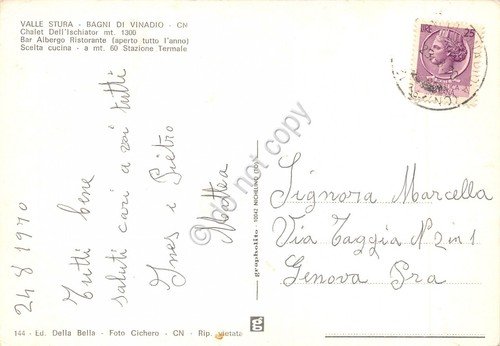 VALLE STURA - BAGNI DI VINADIO - CN
Chalet Dell'Ischiator mt. 1300
Bar Albergo Ristorante (aperto tutto l'anno)
Scelta cucina - a mt. 60 Stazione Termale
LIRE 25
24 8 1970
Tutti bene
saluti cari a voi tutti
Ines e Pietro
Mattea
do not copy
grapholito 10042 NICHELINO (TO)
Signora Marcella
Via Taggia N 2 in 1
Genova Pra
144 - Ed. Della Bella - Foto Cichero - CN - Rip. vietata